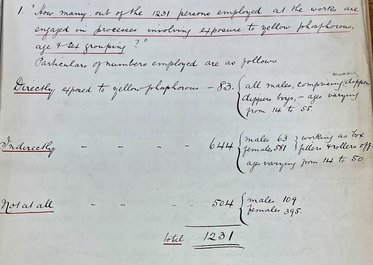 1. "How many out of the 1231 persons employed at the works are
engaged in processes involving exposure to yellow phosphorous,
age & sex grouping?"
Particulars of numbers employed are as follows
Directly exposed to yellow phosphorous - 83. all males, comprising dippers
dippers boys, - ages varying
from 14 to 55.
Indirectly " " " 644 males 63 working as box
females 581 fillers & rollers off -
ages varying from 14 to 50.
Not at all " " " 504 males 109
females 395.
total 1231